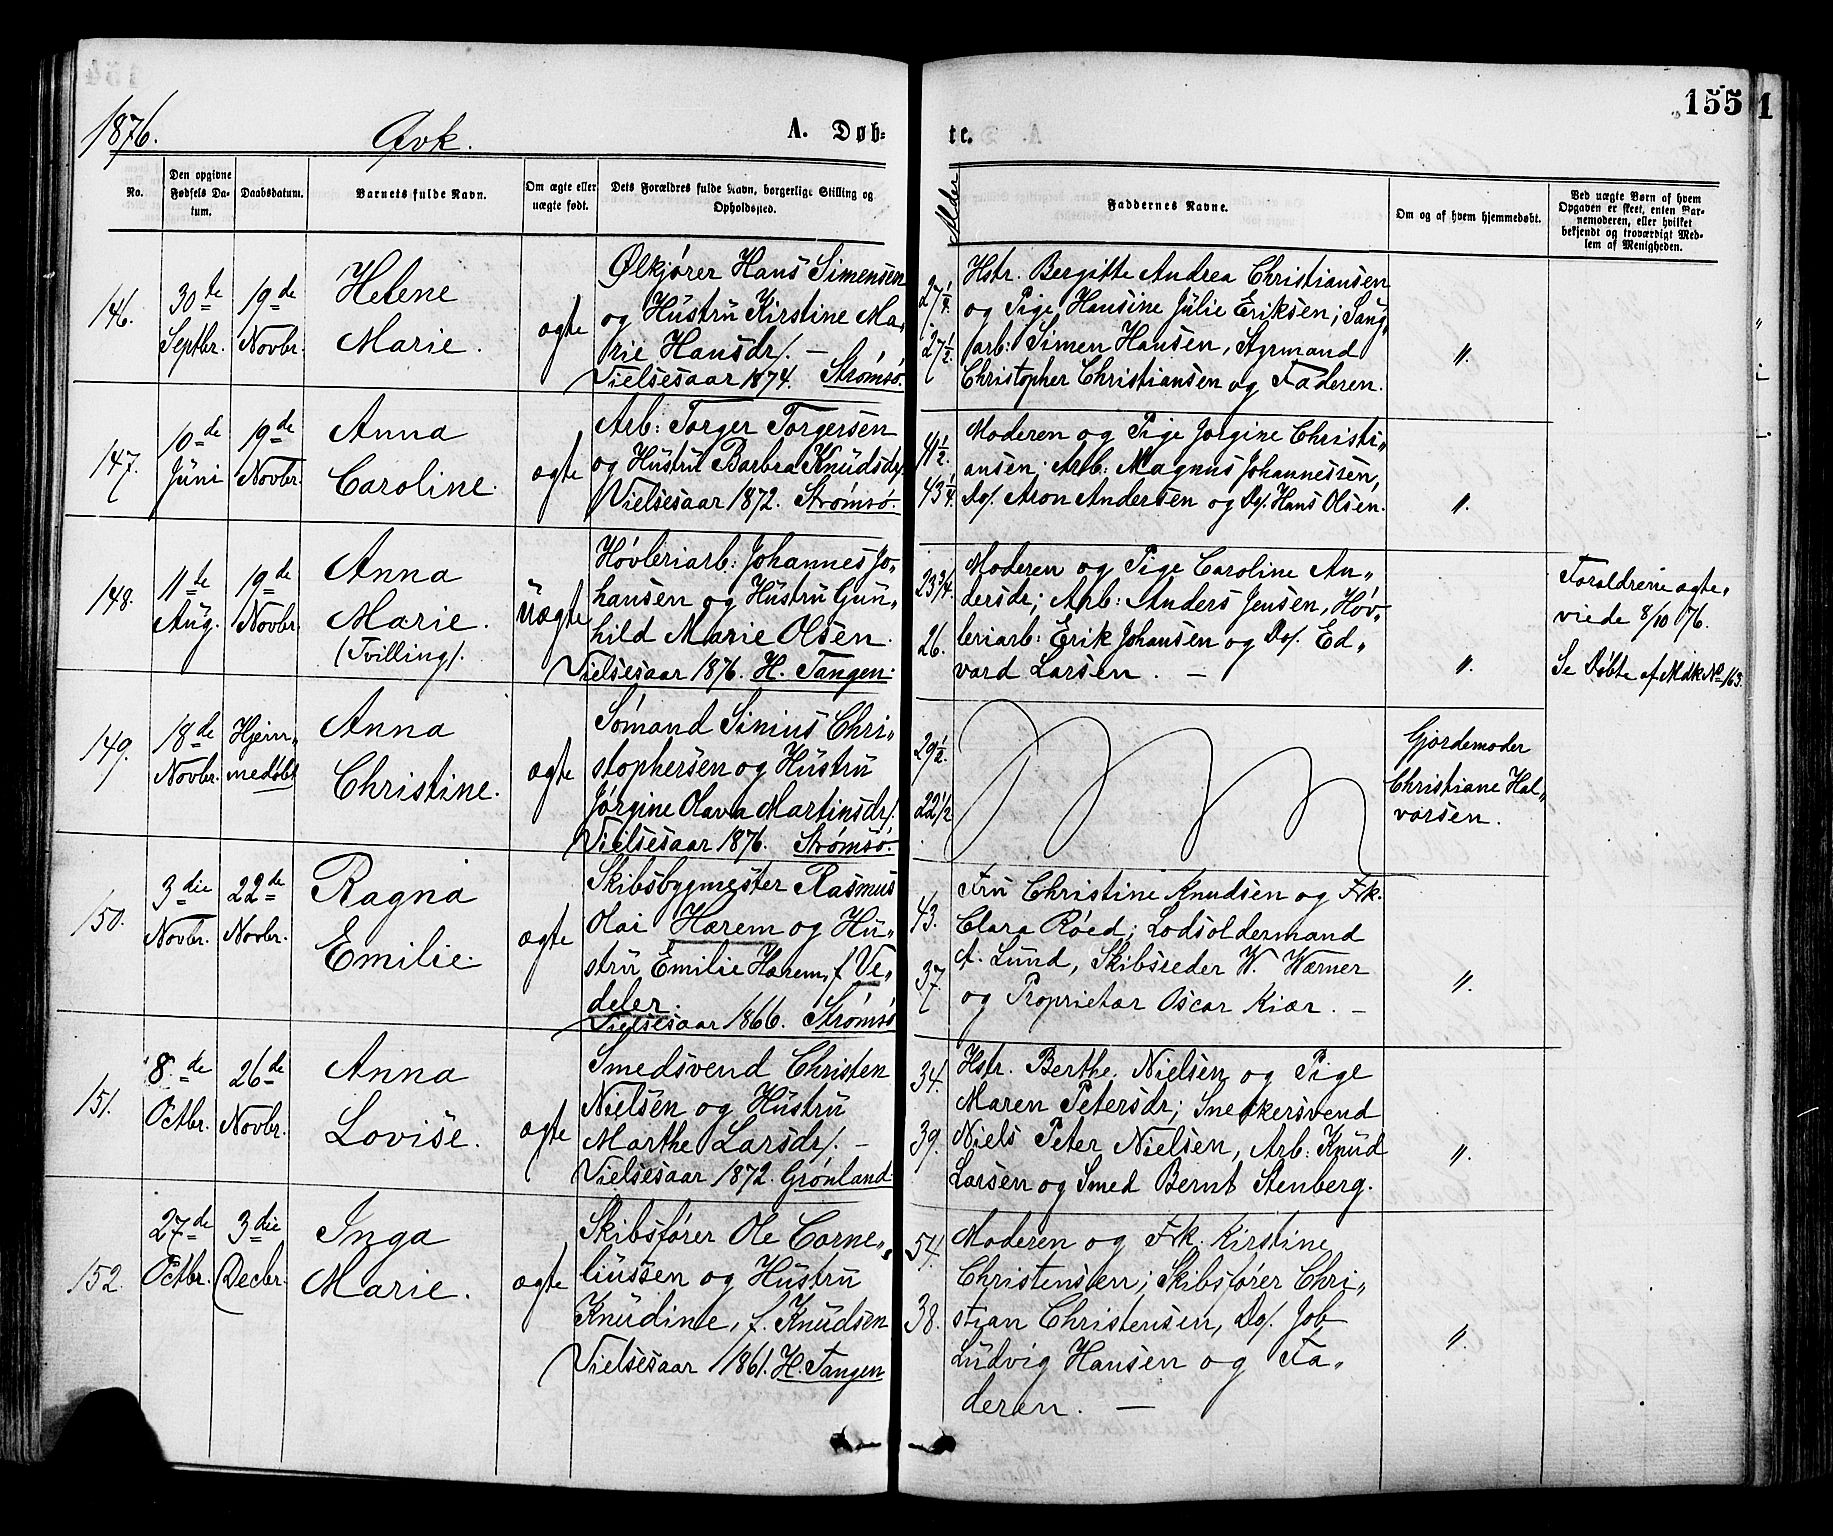 155
1
1876.
Qvk.
A. Døb-
te.
No.
Den opgivne
Fødsels Da-
tum.
Daabsdatum.
Barnets fulde Navn.
Om ægte eller
uægte født.
Dets Forældres fulde Navn, borgerlige Stilling og
Opholdssted.
Alder
Faddernes Navne.
Om og af hvem hjemmedøbt.
Ved uægte Børn af hvem
Opgaven er skeet, enten Bar-
nemoderen, eller hvilket
bekjendt og troværdigt Med-
lem af Menigheden.
146.
30te
Septbr.
19de
Novbr.
Helene
Marie.
ægte
Ølkjører Hans Simensen
og Hustru Kirstine Ma„
rie Hansdr/. —
Vielsesaar 1874. Strømsø.
27 1/4.
27 1/2.
Hstr. Bergitte Andrea Christiansen
og Pige Hansine Julie Eriksen; Saug„
arb: Simen Hansen, Styrmand
Christopher Christiansen og Faderen.
"
147.
10de
Juni
19de
Novbr.
Anna
Caroline.
ægte
Arb: Torger Torgersen
og Hustru Barbra Knudsdr/
Vielsesaar 1872. Strømsø.
41 1/2.
43 1/4.
Moderen og Pige Jorgine Christi„
ansen; Arb: Magnus Johannessen,
Do/. Aron Andersen og Do/. Hans Olsen.
"
148.
11te
Aug.
19de
Novbr.
Anna
Marie.
(Tvilling).
uægte
Høvleriarb: Johannes Jo„
hansen og Hustru Gun„
hild Marie Olsen.
Vielsesaar 1876. H. Tangen.
23 3/4.
26.
Moderen og Pige Caroline An„
dersdr; Arb: Anders Jensen, Høv„
leriarb: Erik Johansen og Do/. Ed„
vard Larsen. —
"
Forældrene ægte„
viede 8/10 76.
Se Døbte af Mdk No 163.
149.
18de
Novbr.
Hjem„
medøbt
Anna
Christine.
ægte
Sømand Sinius Chri„
stophersen og Hustru
Jørgine Olava Martinsdr/.
Vielsesaar 1876. Strømsø.
29 1/2.
22 1/2
Gjordemoder
Christiane Hal„
vorsen.
150.
3die
Novbr.
22de
Novbr.
Ragna
Emilie.
ægte
Skibsbygmester Rasmus
Olai Hærem og Hu„
stru Emilie Hærem, f. Ve„
deler.
Vielsesaar 1866. Strømsø
43.
37.
Fru Christine Knudsen og Frk.
Clara Røed; Lodsoldermand
A. Lund, Skibsreder W. Wærner
og Proprietær Oscar Kiær. —
"
151.
8de
Octbr.
26de
Novbr.
Anna
Lovise.
ægte
Smedsvend Christen
Nielsen og Hustru
Marthe Larsdr/. —
Vielsesaar 1872. Grønland
34.
39.
Hstr. Berthe Nielsen og Pige
Maren Petersdr; Snedkersvend
Niels Peter Nielsen, Arb: Knud
Larsen og Smed Bernt Stenberg.
"
152.
27de
Octbr.
3die
Decbr.
Inga
Marie.
ægte
Skibsfører Ole Corne„
liussen og Hustru
Knudine, f. Knudsen
Vielsesaar 1861. H. Tangen
54.
38.
Moderen og Frk. Kirstine
Christensen; Skibsfører Chri„
stian Christensen, Do/. Job
Ludvig Hansen og Fa„
deren. —
"